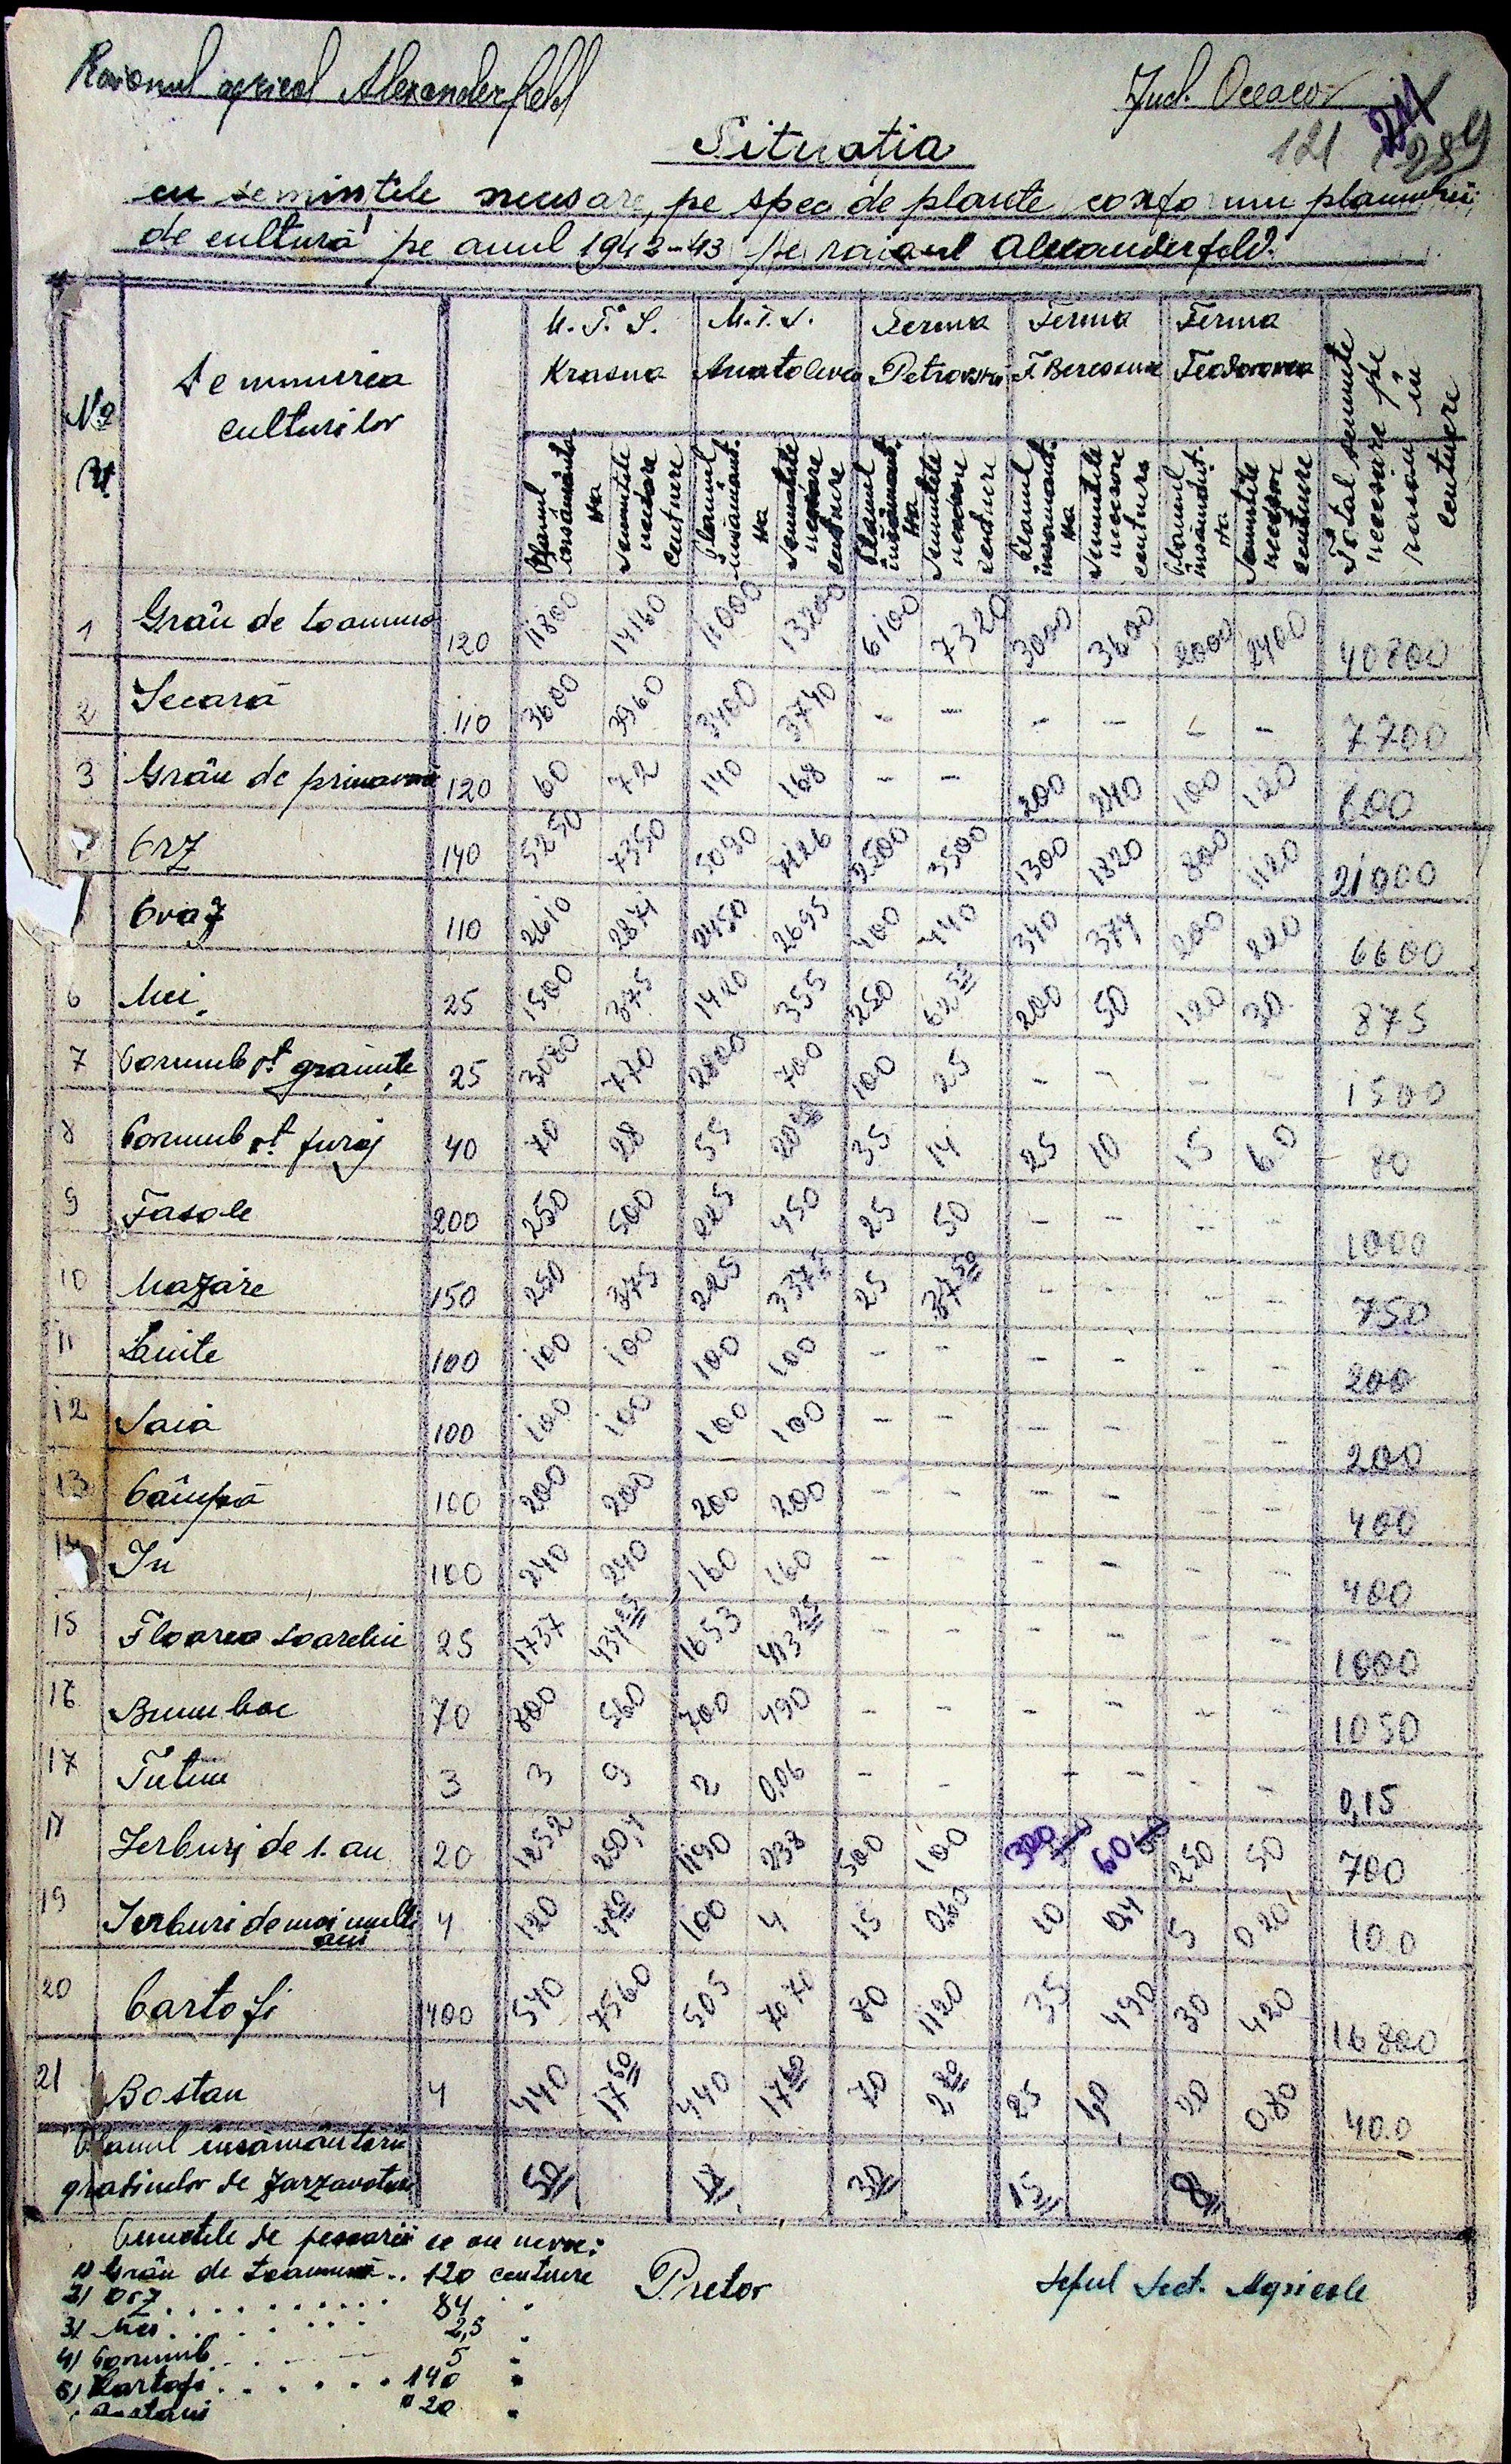 Raionul agricol Alexanderfeld
Jud. Oceacov
121 289
Situatia
cu semintile necesare, pe spec. de plante conform planului
de cultură pe anul 1942-43 pe raionul Alexanderfeld.
№ Denumirea culturilor M.T.S. Krasna M.T.S. Anatolevca Ferma Petrovskii Ferma F. Beresina Ferma Feodorovca Total seminte necesare pe raion in centnere
Planul însământ. Ha Semintele necesare centnere Planul însământ. Ha Semintele necesare centnere Planul însământ. Ha Semintele necesare centnere Planul însămant. Ha Semintele necesare centnere Planul însământ. Ha Semintile necesare centnere
1 Grâu de toamnă 120 11800 14160 11000 13200 6100 7320 3000 3600 2000 2400 40800
2 Secară 110 3600 3960 3400 3740 - - - - - - 7700
3 Grâu de primavară 120 60 72 140 168 - - 200 240 100 120 600
Orz 140 5250 7350 5090 7126 2500 3500 1300 1820 800 1120 21000
Ovaz 110 2610 2871 2450 2695 400 440 340 374 200 220 6600
6 Mei 25 1500 375 1420 355 250 62 50 200 50 120 30 875
7 Porumb pt graunțe 25 3080 770 2800 700 100 25 - - - - 1500
8 Porumb pt furaj 40 70 28 55 35 14 25 10 15 6.0 80
9 Fasole 200 250 500 225 450 25 50 - - - - 1000
10 Mazăre 150 250 375 225 337 5 25 37 50 - - - - 750
11 Linte 100 100 100 100 100 - - - - - - 200
12 Soia 100 100 100 100 100 - - - - - - 200
13 Cânipă 100 200 200 200 200 - - - - - 400
14 In 100 240 240 160 160 - - - - - - 400
15 Floarea soarelui 25 1737 434 25 1653 413 25 - - - - - - 1000
16 Bumbac 70 800 560 700 490 - - - - - - 1050
17 Tutun 3 3 9 2 0,06 - - - - - - 0,15
18 Ierburi de 1. an 20 1252 250,4 1190 238 500 100 300 60 250 50 700
19 Ierburi de mai multi ani 4 120 4 80 100 4 15 0.60 10 0,4 5 0.20 10.0
20 Cartofi 1400 540 7560 505 7070 80 1120 35 490 30 420 16800
21 Bostan 4 440 17 60 440 17 60 70 2 80 25 20 0.80 40.0
Planul însământării
gradinilor de zarzavaturi 50 30 15 8
de pescarii ce au nevoe:
1) Grâu de toamnă.. 120 centnere
2) Orz.......... 84 "
3) Mei........ 2,5 "
4) Porumb 5 "
5) Cartofi...... 140 "
Bostani 20 "
Pretor
Seful Sect. Agricole